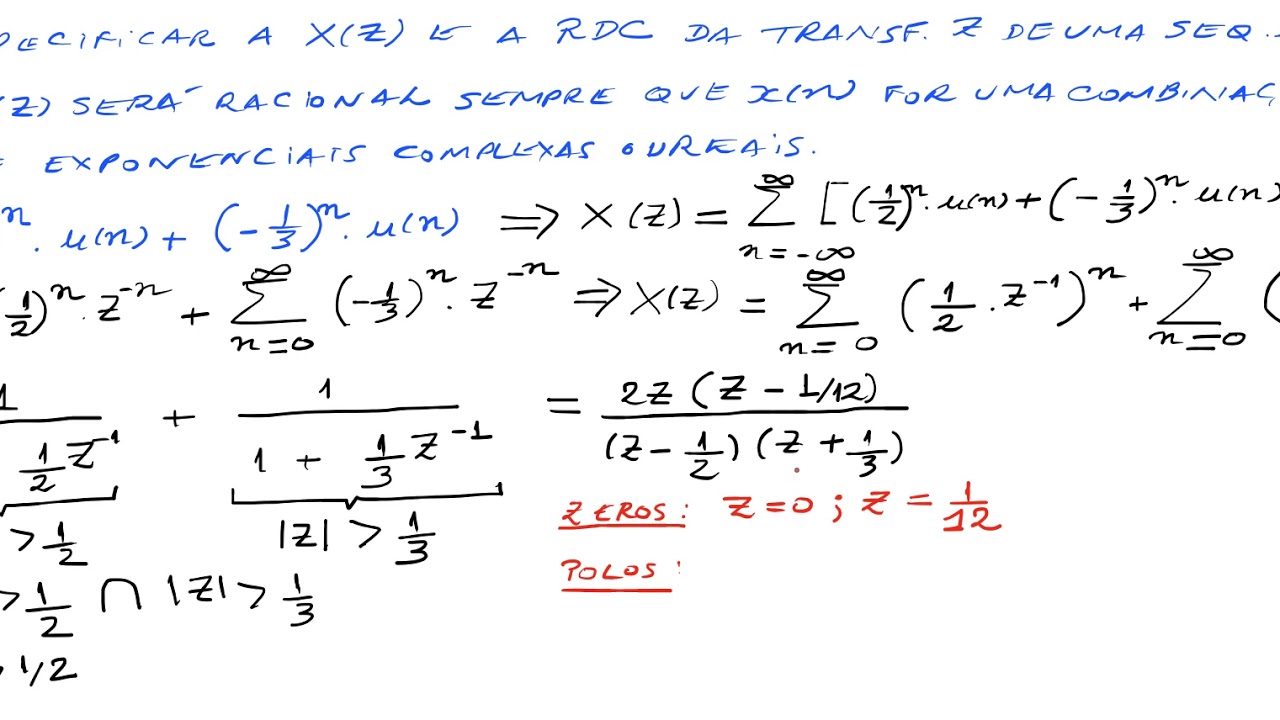 PECIFICAR A X(Z) E A RDC DA TRANSF. Z DE UMA SEQ.
(Z) SERÁ RACIONAL SEMPRE QUE x(n) FOR UMA COMBINAÇ
E EXPONENCIAIS COMPLEXAS OU REAIS.
ⁿ · u(n) + (-1/3)ⁿ · u(n) ⟹ X(Z) = ∑_{n=-∞}^{∞} [(1/2)ⁿ · u(n) + (-1/3)ⁿ · u(n)
(1/2)ⁿ · Z⁻ⁿ + ∑_{n=0}^{∞} (-1/3)ⁿ · Z⁻ⁿ ⟹ X(Z) = ∑_{n=0}^{∞} (1/2 · Z⁻¹)ⁿ + ∑_{n=0}^{∞} (
1/(1/2 Z⁻¹) + 1/(1 + 1/3 Z⁻¹) = 2Z (Z - 1/12)/((Z - 1/2)(Z + 1/3))
> 1/2 |Z| > 1/3
ZEROS: Z = 0 ; Z = 1/12
POLOS:
> 1/2 ∩ |Z| > 1/3
> 1/2